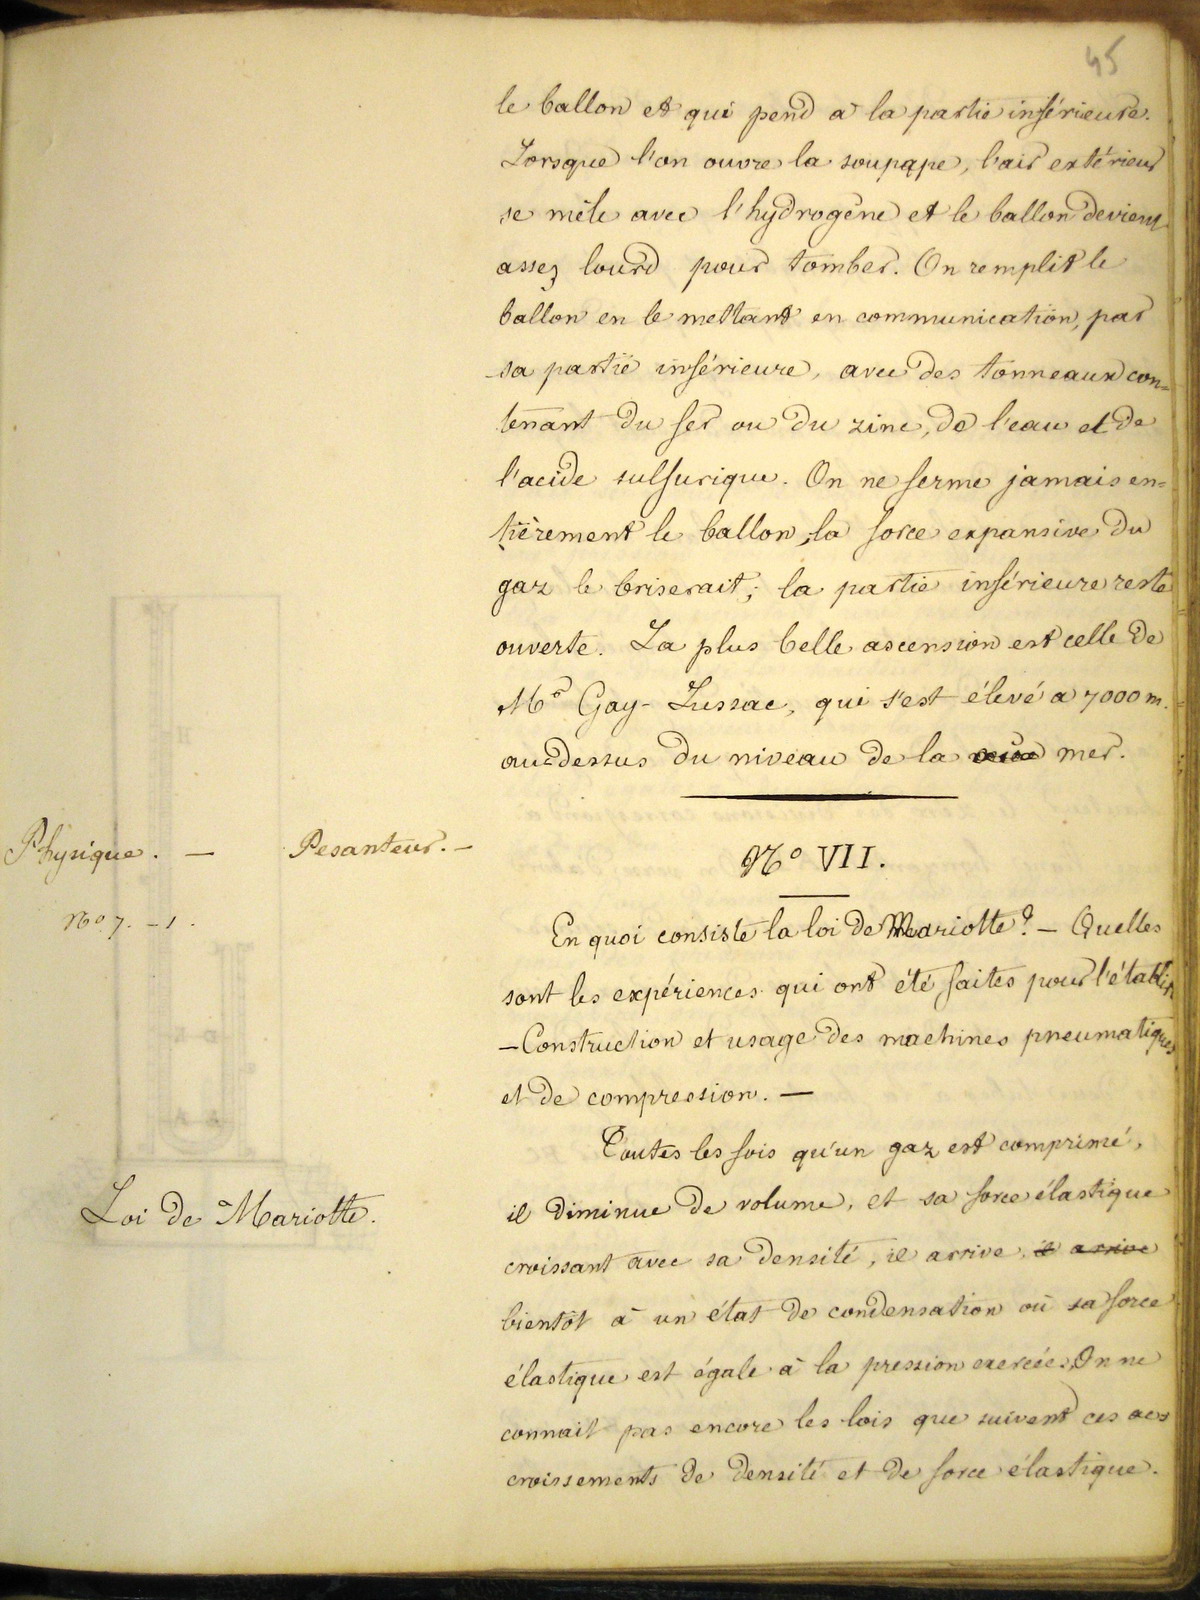 45
le ballon et qui pend à la partie inférieure.
Lorsque l'on ouvre la soupape, l'air extérieur
se mêle avec l'hydrogène et le ballon devient
assez lourd pour tomber. On remplit le
ballon en le mettant en communication, par
sa partie inférieure, avec des tonneaux con=
tenant du fer ou du zinc, de l'eau et de
l'acide sulfurique. On ne ferme jamais en=
tièrement le ballon, la force expansive du
gaz le briserait; la partie inférieure reste
ouverte. La plus belle ascension est celle de
Mr Gay-Lussac, qui s'est élevé a 7000 m.
au=dessus du niveau de la mer.
Physique. — Pesanteur. —
No 7. - 1.
No VII.
En quoi consiste la loi de Mariotte? — Quelles
sont les expériences qui ont été faites pour l'établir
— Construction et usage des machines pneumatiques
et de compression. —
Toutes les fois qu'un gaz est comprimé,
Loi de Mariotte.
il diminue de volume, et sa force élastique
croissant avec sa densité, il arrive, il arrive
bientôt à un état de condensation où sa force
élastique est égale à la pression exercée. On ne
connait pas encore les lois que suivent ces ac=
croissements de densité et de force élastique.